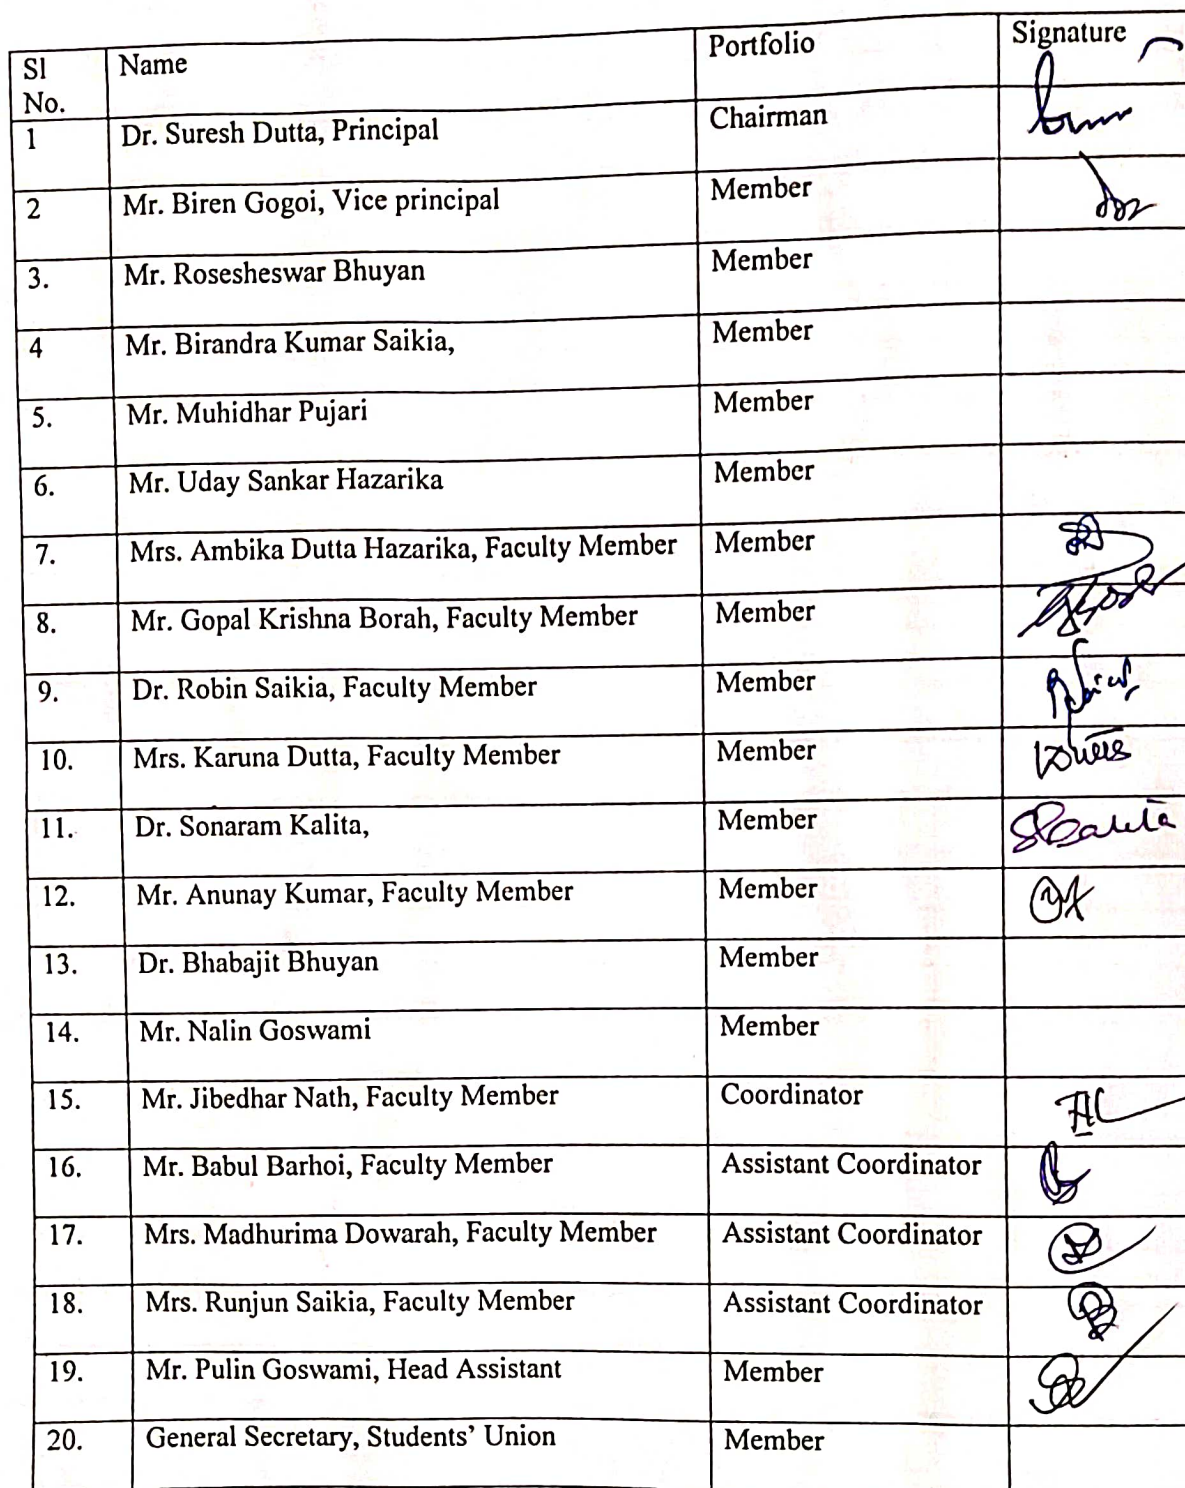 Sl No. Name Portfolio Signature
1 Dr. Suresh Dutta, Principal Chairman
2 Mr. Biren Gogoi, Vice principal Member
3. Mr. Rosesheswar Bhuyan Member
4 Mr. Birandra Kumar Saikia, Member
5. Mr. Muhidhar Pujari Member
6. Mr. Uday Sankar Hazarika Member
7. Mrs. Ambika Dutta Hazarika, Faculty Member Member
8. Mr. Gopal Krishna Borah, Faculty Member Member
9. Dr. Robin Saikia, Faculty Member Member
10. Mrs. Karuna Dutta, Faculty Member Member
11. Dr. Sonaram Kalita, Member SKalita
12. Mr. Anunay Kumar, Faculty Member Member
13. Dr. Bhabajit Bhuyan Member
14. Mr. Nalin Goswami Member
15. Mr. Jibedhar Nath, Faculty Member Coordinator
16. Mr. Babul Barhoi, Faculty Member Assistant Coordinator
17. Mrs. Madhurima Dowarah, Faculty Member Assistant Coordinator
18. Mrs. Runjun Saikia, Faculty Member Assistant Coordinator
19. Mr. Pulin Goswami, Head Assistant Member
20. General Secretary, Students' Union Member